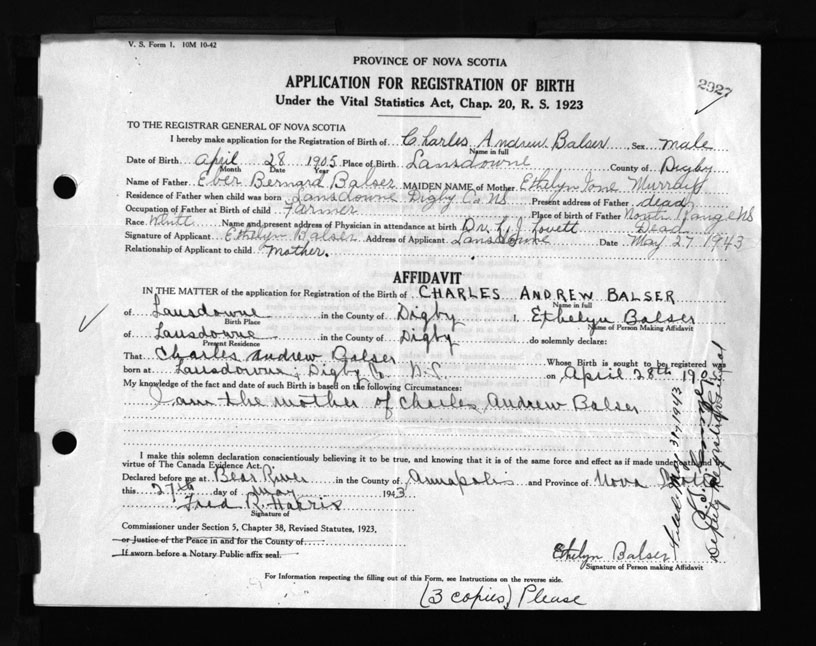 V. S. Form 1. 10M 10-42
PROVINCE OF NOVA SCOTIA
APPLICATION FOR REGISTRATION OF BIRTH
2927
Under the Vital Statistics Act, Chap. 20, R. S. 1923
TO THE REGISTRAR GENERAL OF NOVA SCOTIA
I hereby make application for the Registration of Birth of Charles Andrew Balser Sex male
Name in full
Date of Birth April 28 1905 Place of Birth Lansdowne County of Digby
Month Date Year
Name of Father Eber Bernard Balser MAIDEN NAME of Mother Ethelyn Ione Murray
Residence of Father when child was born Lansdowne Digby Co NS Present address of Father dead
Occupation of Father at Birth of child Farmer Place of Birth of Father North Range NS
Race White Name and present address of Physician in attendance at birth Dr. L. J. Lovett Dead
Signature of Applicant Ethelyn Balser Address of Applicant Lansdowne Date May 27 1943
Relationship of Applicant to child Mother.
AFFIDAVIT
IN THE MATTER of the application for Registration of the Birth of CHARLES ANDREW BALSER
Name in full
of Lansdowne in the County of Digby I, Ethelyn Balser
Birth Place Name of Person Making Affidavit
of Lansdowne in the County of Digby do solemnly declare:
Present Residence
That Charles Andrew Balser Whose Birth is sought to be registered was
born at Lansdowne, Digby Co. N.S. on April 28th 190
My knowledge of the fact and date of such Birth is based on the following Circumstances:
I am the mother of Charles Andrew Balser
I make this solemn declaration conscientiously believing it to be true, and knowing that it is of the same force and effect as if made under oath and by
virtue of The Canada Evidence Act.
Declared before me at Bear River in the County of Annapolis and Province of Nova Scotia
this 27th day of May 1943
Fred R. Harris
Signature of
Commissioner under Section 5, Chapter 38, Revised Statutes, 1923,
or Justice of the Peace in and for the County of
If sworn before a Notary Public affix seal.
Ethelyn Balser
Signature of Person making Affidavit
For Information respecting the filling out of this Form, see Instructions on the reverse side.
(3 copies) Please
Filed May 31, 1943
Deputy Registrar General